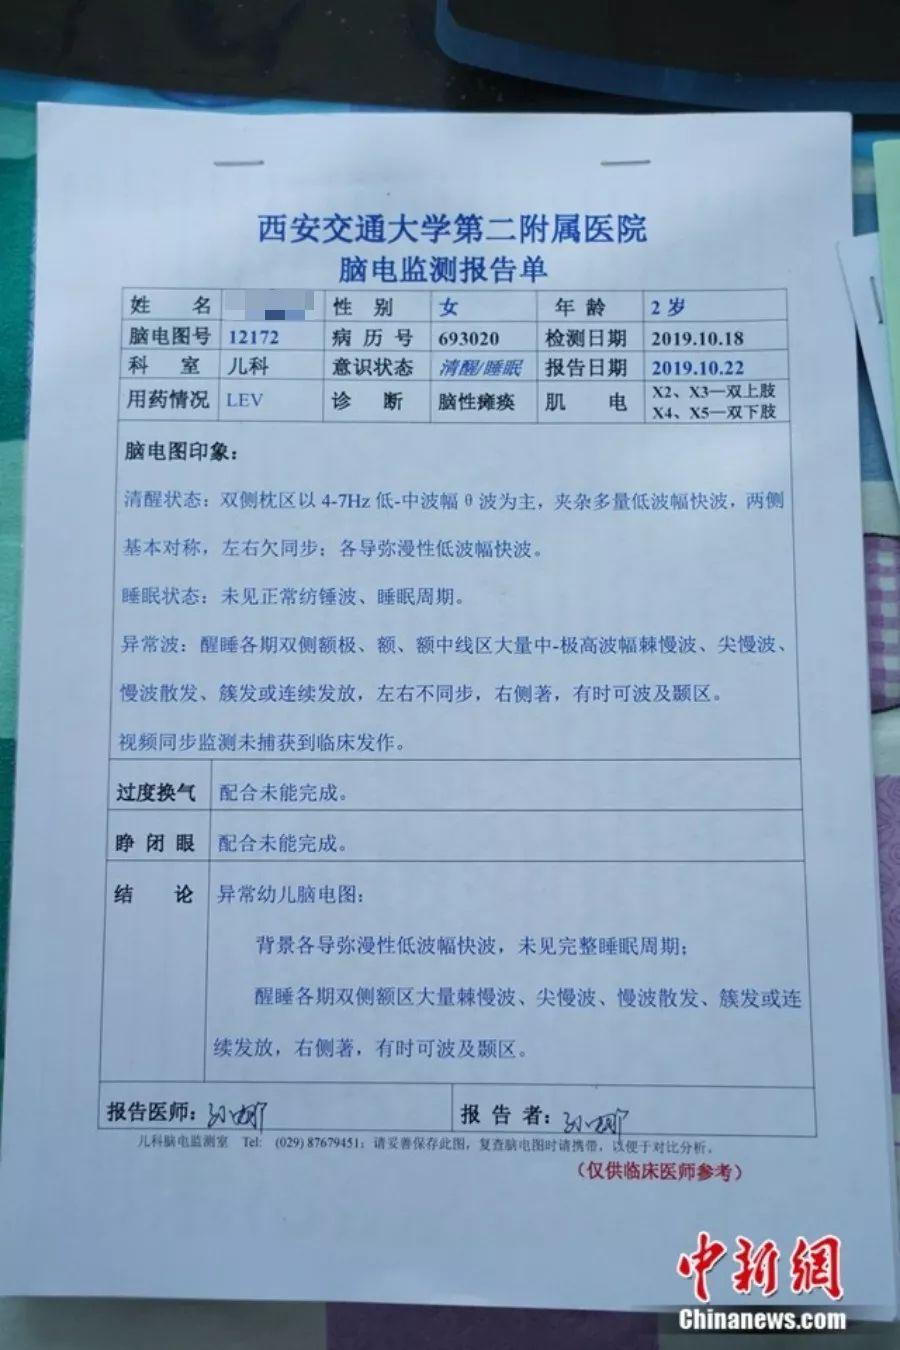 西安交通大学第二附属医院
脑电监测报告单
姓 名 性 别 女 年 龄 2 岁
脑电图号 12172 病 历 号 693020 检测日期 2019.10.18
科 室 儿科 意识状态 清醒/睡眠 报告日期 2019.10.22
用药情况 LEV 诊 断 脑性瘫痪 肌 电 X2、X3—双上肢
X4、X5—双下肢
脑电图印象：
清醒状态：双侧枕区以 4-7Hz 低-中波幅 θ 波为主，夹杂多量低波幅快波，两侧
基本对称，左右欠同步；各导弥漫性低波幅快波。
睡眠状态：未见正常纺锤波、睡眠周期。
异常波：醒睡各期双侧额极、额、额中线区大量中-极高波幅棘慢波、尖慢波、
慢波散发、簇发或连续发放，左右不同步，右侧著，有时可波及颞区。
视频同步监测未捕获到临床发作。
过度换气 配合未能完成。
睁 闭 眼 配合未能完成。
结 论 异常幼儿脑电图：
背景各导弥漫性低波幅快波，未见完整睡眠周期；
醒睡各期双侧额区大量棘慢波、尖慢波、慢波散发、簇发或连
续发放，右侧著，有时可波及颞区。
报告医师： 报 告 者：
儿科脑电监测室 Tel: (029) 87679451；请妥善保存此图，复查脑电图时请携带，以便于对比分析。
（仅供临床医师参考）
中新網
Chinanews.com